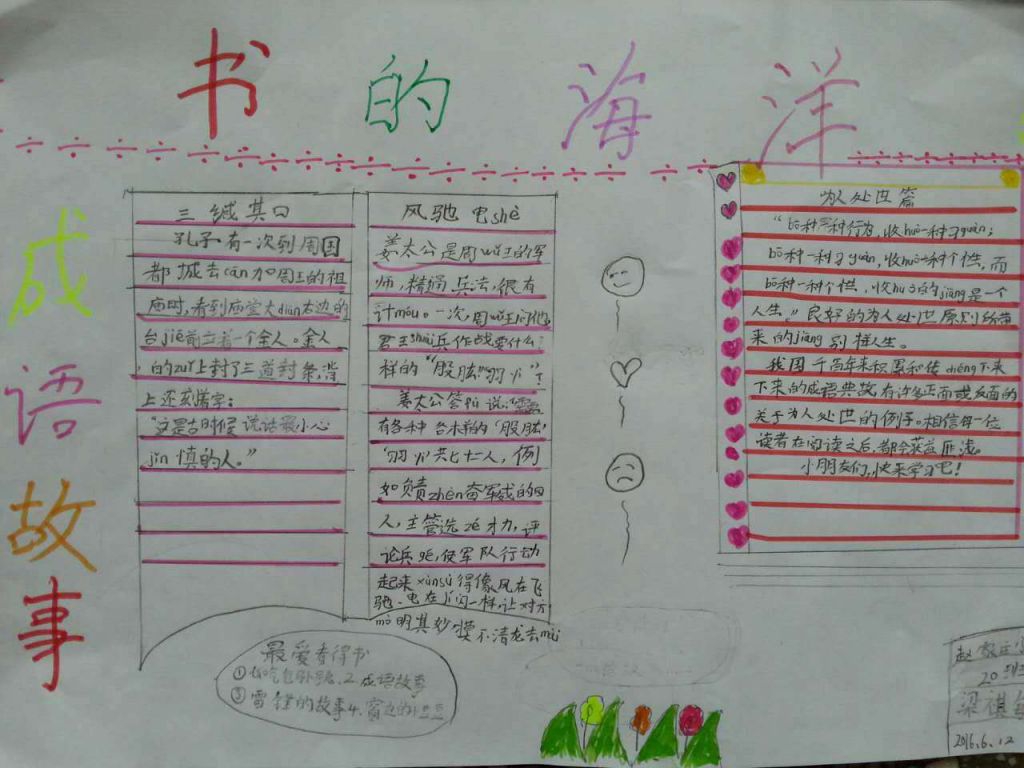 书的海洋
成语故事
三缄其口
孔子有一次到周国
都城去cān加周王的祖
庙时,看到庙堂大diàn右边的
台jiē前立着一个金人。金人
的zuǐ上封了三道封条,背
上还刻着字:
“这是古时候说话最小心
jǐn慎的人。”
风驰电shè
姜太公是周wǔ王的军
师,精通兵法,很有
计móu。一次,周wǔ王问他:
君王shuài兵作战要什么
样的“股肱”“羽yì”?
姜太公答 说:“需要
有各种各样的“股肱”
“羽yì”共七十二人,例
如负责zhèn奋军威的四
人,主管选zé才力,评
论兵 ,使军队行动
起来xùnsù得像风在飞
驰、电在 闪一样,让对方
mò明其妙,摸不清龙去mài
为人处世篇
“bō种一种行为,收huò一种习guàn;
bō种一种习guàn,收huò一种个性,而
bō种一种个性,收huò的jiāng是一个
人生。”良好的为人处世原则所带
来的jiāng别样人生。
我国千百年来积累和传chéng下来
下来的成语典故,有许多正面或反面的
关于为人处世的例子。相信每一位
读者在阅读之后,都会获益匪浅。
小朋友们,快来学习吧!
最爱看得书
2.成语故事
③雷锋的故事4.窗边的小豆豆
赵
20 班
梁祺
2016.6.12